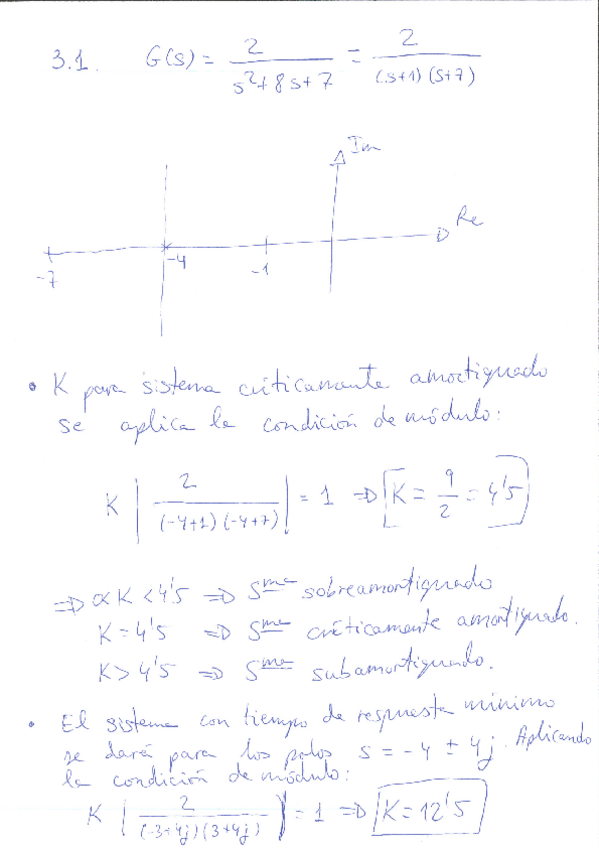 3.1. G(s) = 2 / (s²+8s+7) = 2 / ((s+1)(s+7))
Im
Re
-7 -4 -1
• K para sistema críticamente amortiguado
se aplica la condición de módulo:
K | 2 / ((-4+1)(-4+7)) | = 1 ⇒ K = 9/2 = 4'5
⇒ 0<K<4'5 ⇒ Sma sobreamortiguado
K = 4'5 ⇒ Sma críticamente amortiguado.
K > 4'5 ⇒ Sma subamortiguado.
• El sistema con tiempo de respuesta mínimo
se dará para los polos s = -4 ± 4j. Aplicando
la condición de módulo:
K | 2 / ((-3+4j)(3+4j)) | = 1 ⇒ K = 12'5